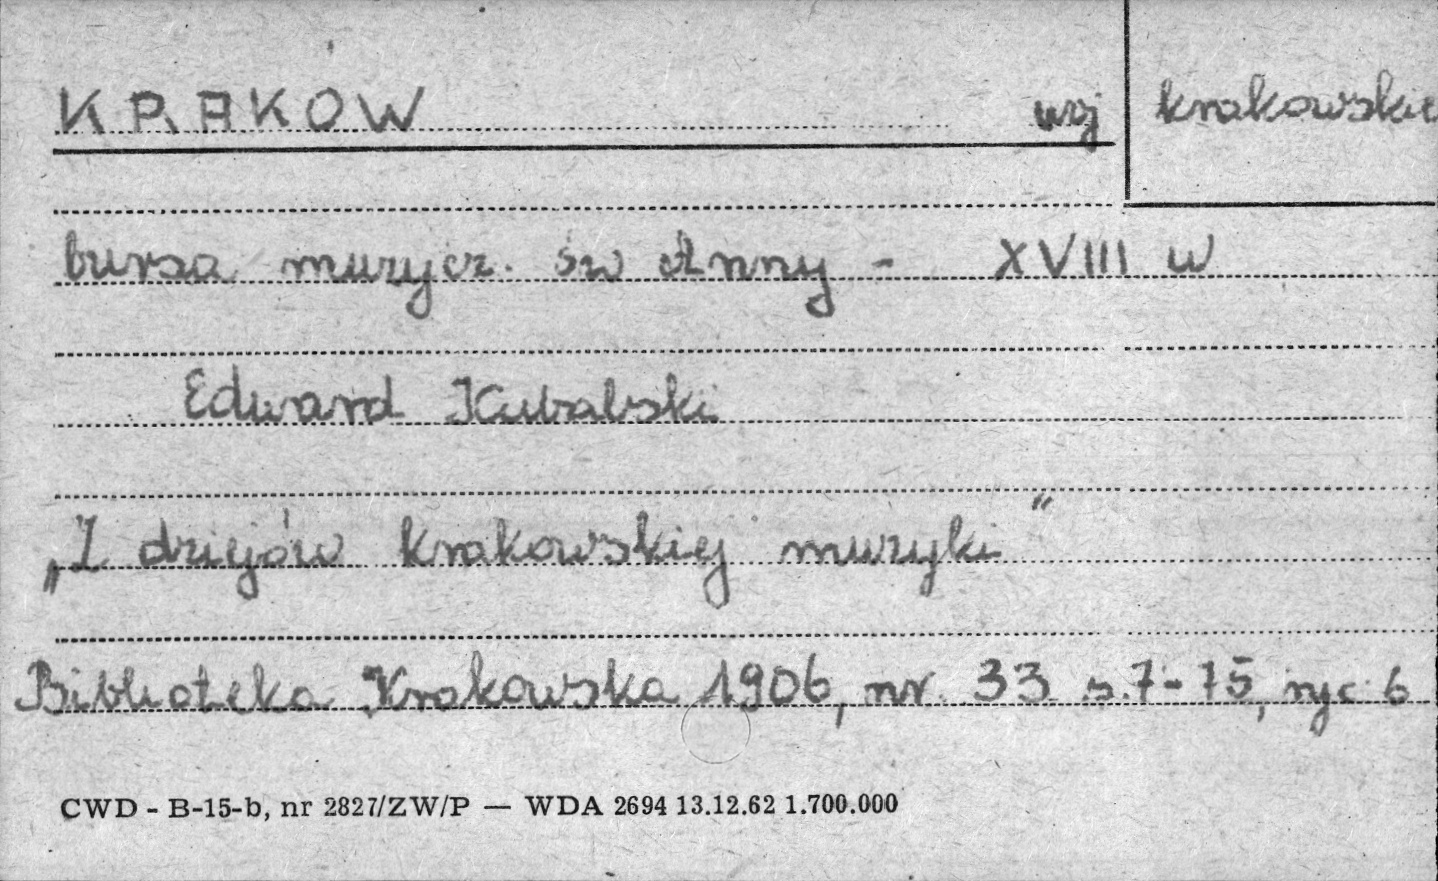 KRAKOW woj krakowskie
bursa muzycz. św Anny - XVIII w
Edward Kubalski
„Z dziejów krakowskiej muzyki"
Biblioteka Krakowska 1906, nr. 33 s. 7-75, ryc 6
CWD - B-15-b, nr 2827/ZW/P — WDA 2694 13.12.62 1.700.000